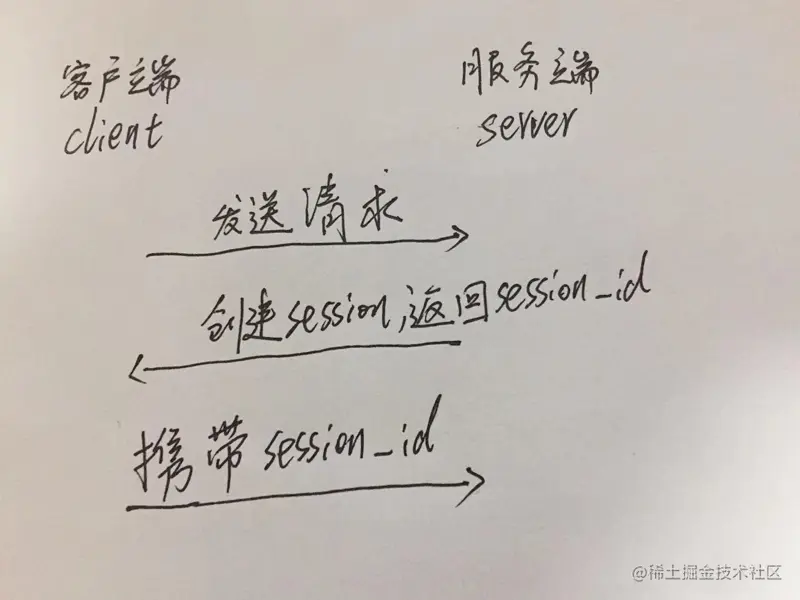 客户端 服务端
client server
发送请求
创建session,返回session_id
携带session_id
@稀土掘金技术社区